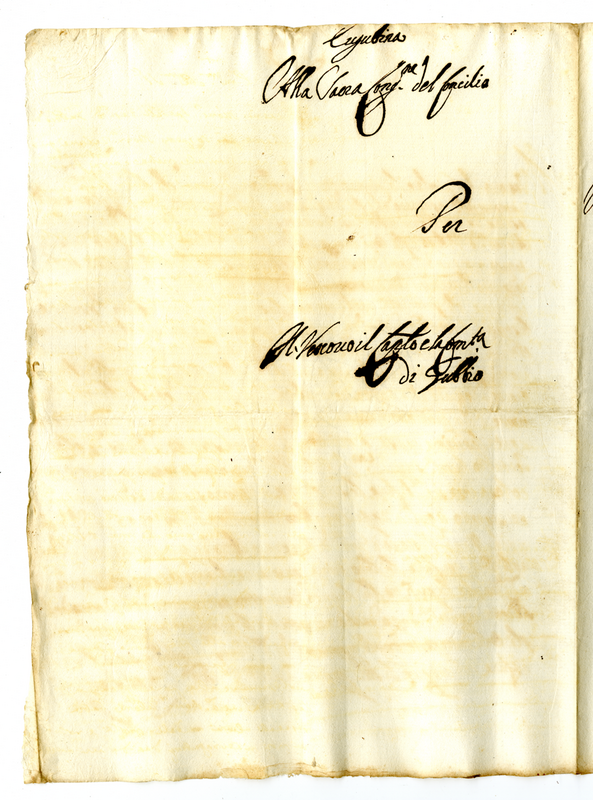 Eugubina
Alla Sacra Cong.ne del Concilio
Per
Il Vescovo il Cap.lo e la Com.tà
di Gubbio